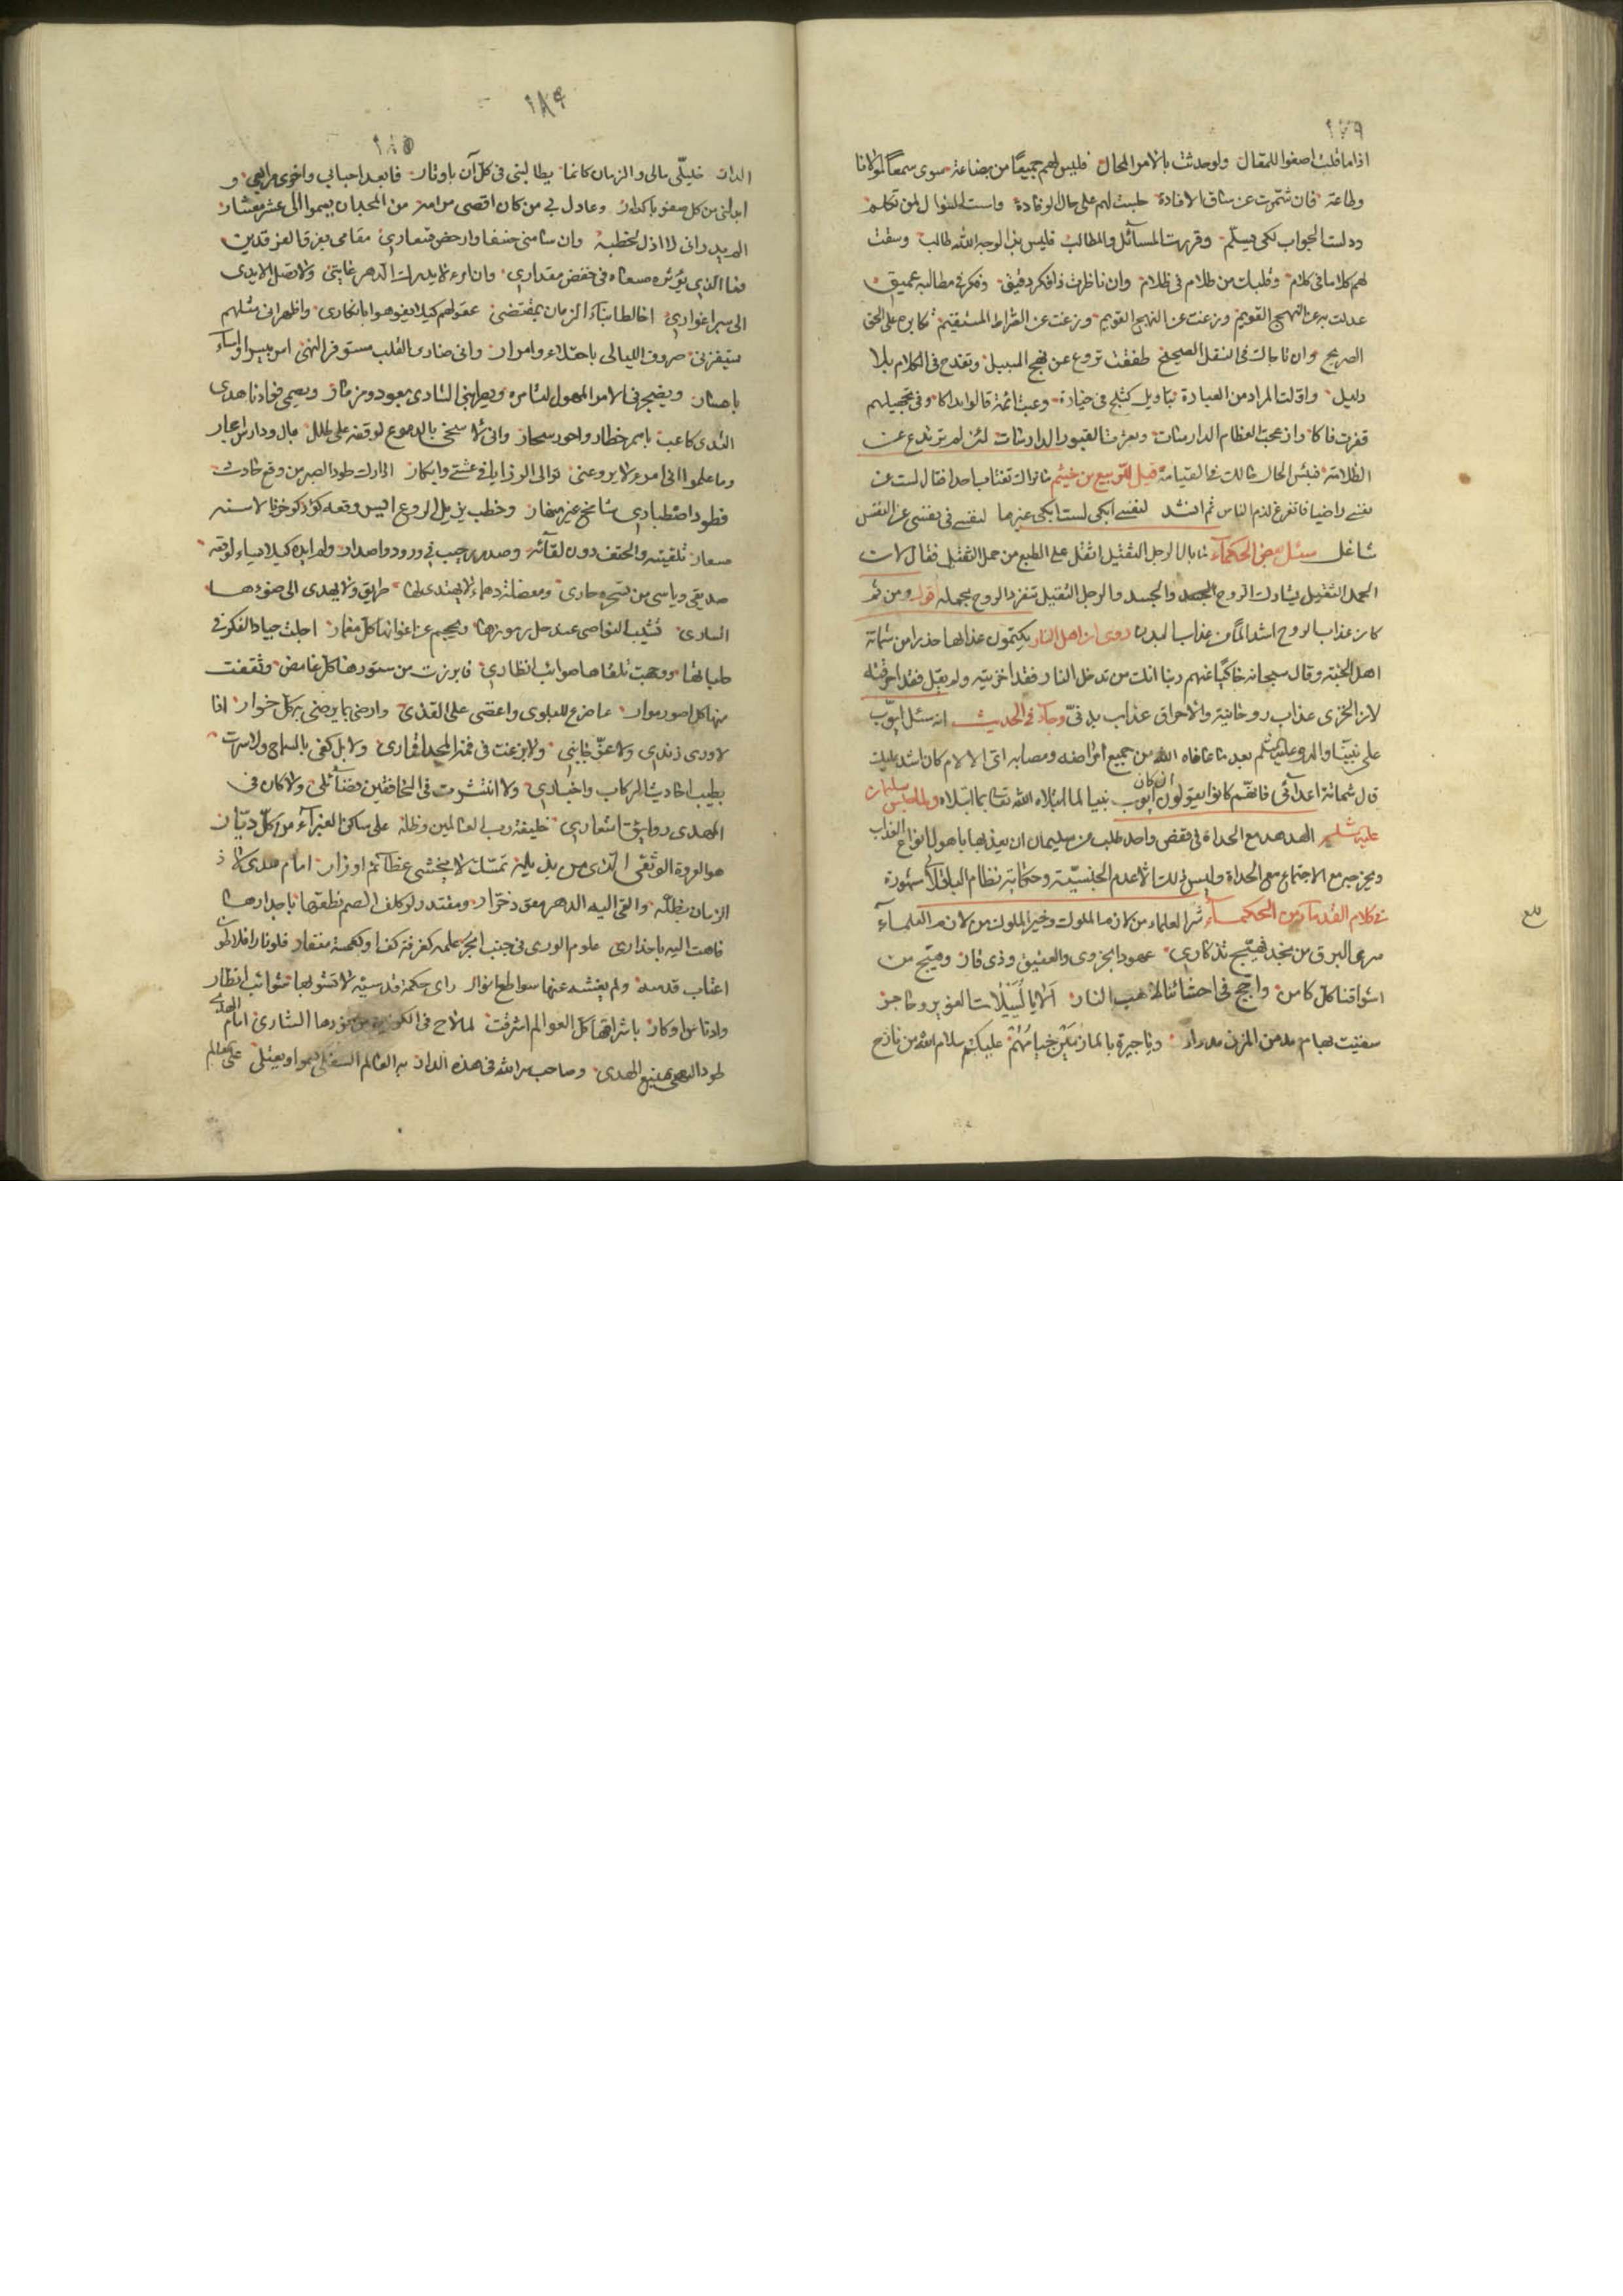 ١٧٩
اذا ما قلت اصغوا للمقال ولو حدثت بالامر المحال فليس لهم جميعًا من بضاعة سوى سمعًا لمولانا
وطاعة فان شمّرت عن ساق الافادة جلست لهم على حال الوفادة
وقررت المسآئل والمطالب فليس بذا لوجه الله طالب وسقت
لهم كلاما فى كلام وقلبات من ظلام فى ظلام وان ناظرت ذا فكر دقيق وفكر فى مطالبه عميق
عدلت به عن النهج القويم وزعت عن الصراط المستقيم مكابرة على الحق
الصريح وان ناجاك فى النقل الصحيح طفقت تروغ عن نهج السبيل وتقدح فى الكلام بلا
دليل واوّلت المراد من العبارة بتاويل كثلج فى خيارة
قيل للربيع بن خيثم ما نراك تغتاب احدا فقال لست عن
نفسى راضيا فاتفرغ لذم الناس ثم انشد لنفسى ابكى لست ابكى غيرها لنفسى فى نفسى عن النفس
شاغل سئل بعض الحكمآء ما بال الرجل الثقيل اثقل على الطبع من حمل الثقيل فقال لان
الحمل الثقيل يشارك الروح الجسد والجسد والرجل الثقيل تنفرد الروح بحمله قوله ومن ثم
كان عذاب الروح اشد الما من عذاب البدن روى ان اهل النار يكتمون عذابها حذرا من شماتة
اهل الجنة وقال سبحانه حاكيًا عنهم ربنا انك من تدخل النار فقد اخزيته ولم يقل فقد احرقته
لان الخزى عذاب روحانية والاحراق عذاب بدنىّ وجآء فى الحديث انه سئل ايوّب
على نبينا وآله وعليه السلم بعد ما عافاه الله من جميع امراضه ومصابه اى الالام كان اشد عليك
قال شماتة اعدآئى فانهم كانوا يقولون ان كان ايوب نبيا لما ابتلاه الله تعا بما ابتلاه
عليه السلم الهدهد مع الحداة فى قفص واحد طلب من سليمان ان يعذبها باهول انواع العذاب
فى كلام القدمآء من الحكمآء شر العلماء من لازم الملوك وخير الملوك من لازم العلمآء
سرى البرق من نجد فهيّج تذكارى عهودا بحزوى والعذيب وذى قار وهيّج من
اشواقنا كل كامن واجّج فى احشائنا لاهب النار الا يا لييلات الغوير وحاجر
سقيت بهام من بنى المزن مدرار ويا جيرة بالمازمين خيامهم عليكم سلام الله من نازح
بلغ
١٨٤
١٨٥
الدار خليلىّ مالى والزمان كانما يطالبنى فى كل آن باوتار فابعد احبابى واخلى مرابعى و
ابدلنى من كل صفو باكدار وعادل بى من كان اقصى مرامه من المجد ان يسموا الى عشر معشار
الم يدر انى لا اذل لخطبه وان سامنى خسفا وارخص اسعارى مقامى بفرق الفرقدين
فما الذى يؤثره مسعاه فى خفض مقدارى وانى امرء لا يدرك الدهر غايتى ولا تصل الايدى
الى سبر اغوارى اخالط ابناء الزمان بمقتضى عقولهم كيلا يفوهوا بانكارى واظهر انى مثلهم
يستفزنى صروف الليالى باحلاء وامرار وانى ضاوى القلب مستوفز النهى اسر بيسر او اساء
باعسار ويضجرنى الامر المهول لقاؤه ويطربنى الشادى بعود ومزمار ويصمى فؤادى ناهد
الثدى كاعب باسمر خطار واحور سحار وانى لا اسخى بالدموع لوقفة على طلل بال ودارس احجار
وما علموا انى امرء لا يروعنى توالى الرزايا فى عشى وابكار اذا دك طود الصبر من وقع حادث
فطود اصطبارى شامخ غير منهار وخطب يزيل الروع ايسر وقعه كؤد كوخز بالاسنة
سعار تلقيته والحتف دون لقآئه وصدر رحيب فى ورود واصدار ولم ابده كيلا يساء لوقعه
صديقى وياسى من تعسره جارى ومعضلة دهماء لا يهتدى لها طريق ولا يهدى الى ضوءها
السارى تشيب النواصى عند حل رموزها ويحجم عن اغوارها كل مغوار اجلت جياد الفكر فى
حلباتها ووجهت تلقاها صوائب انظارى فابرزت من مستورها كل غامض وثقفت
منها كل اصور موار ءاضرع للبلوى واغضى على القذى وارضى بما يرضى به كل خوار اذا
لا ورى زندى ولا عزّ جانبى ولا بزغت فى قمة المجد اقمارى ولا بل كفى بالسماح ولا سرت
بطيب احاديث الركاب واخبارى ولا انتشرت فى الخافقين فضائلى ولا كان فى
المهدى رائق اشعارى خليفة رب العالمين وظله على ساكن الغبرآء من كل ديّار
هو العروة الوثقى الذى من بذيله تمسك لا يخشى عظائم اوزار امام هدى لاذ
الزمان بظله والقى اليه الدهر مقود خوّار ومقتدر لو كلف الصم نطقها باجدارها
فاهت اليه باجذار علوم الورى فى جنب ابحر علمه كغرفة كف او كغمسة منقار فلو زار افلاطون
اعتاب قدسه ولم يغشه عنها سواطع انوار راى حكمة قدسية لا تشوبها شوائب انظار
وادناس افكار باشراقها كل العوالم اشرقت لما لاح فى الكونين من نورها السارى امام الهدى
طود النهى منبع الهدى وصاحب سر الله فى هذه الدار به العالم السفلى يسموا ويعتلى على العالم